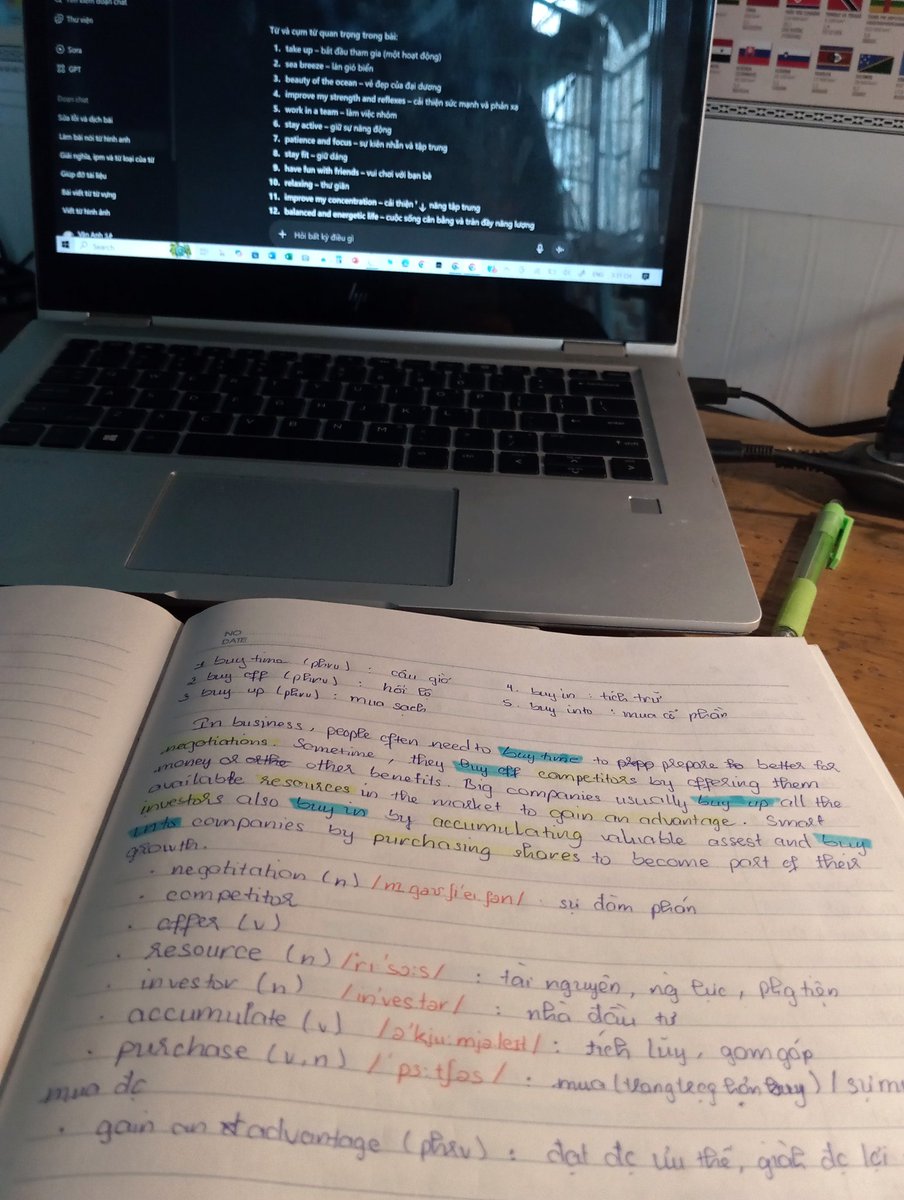 Thư viện
Sora
GPT
Đoạn chat
Sửa lỗi và dịch bài
Làm bài nói từ hình ảnh
Giải nghĩa, ipm và từ loại của từ
Giúp đỡ tài liệu
Bài viết từ từ vựng
Viết từ hình ảnh
Từ và cụm từ quan trọng trong bài:
1. take up – bắt đầu tham gia (một hoạt động)
2. sea breeze – làn gió biển
3. beauty of the ocean – vẻ đẹp của đại dương
4. improve my strength and reflexes – cải thiện sức mạnh và phản xạ
5. work in a team – làm việc nhóm
6. stay active – giữ sự năng động
7. patience and focus – sự kiên nhẫn và tập trung
8. stay fit – giữ dáng
9. have fun with friends – vui chơi với bạn bè
10. relaxing – thư giãn
11. improve my concentration – cải thiện năng tập trung
12. balanced and energetic life – cuộc sống cân bằng và tràn đầy năng lượng
Hỏi bất kỳ điều gì
Search
ENG
hp
NO
DATE
1 buy time (phrv) : câu giờ
2 buy off (phrv) : hối lộ
3 buy up (phrv) : mua sạch
4. buy in : tích trữ
5. buy into : mua cổ phần
In business, people often need to buy time to prepare better for
negotiations. Sometime, they buy off competitors by offering them
money or other benefits. Big companies usually buy up all the
available resources in the market to gain an advantage. Smart
investors also buy in by accumulating valuable assest and buy
into companies by purchasing shares to become part of their
growth.
• negotitation (n) : sự đàm phán
• competitor
• offer (v)
• resource (n) /rɪ'sɔ:s/ : tài nguyên, ng lực, phg tiện
• investor (n) /in'vestər/ : nhà đầu tư
• accumulate (v) /ə'kju:mjəleɪt/ : tích lũy, gom góp
• purchase (v,n) /'pɜ:tʃəs/ : mua (trang trọng hơn buy) / sự m
mua đc
• gain an advantage (phrv) : đạt đc ưu thế, giành đc lợi